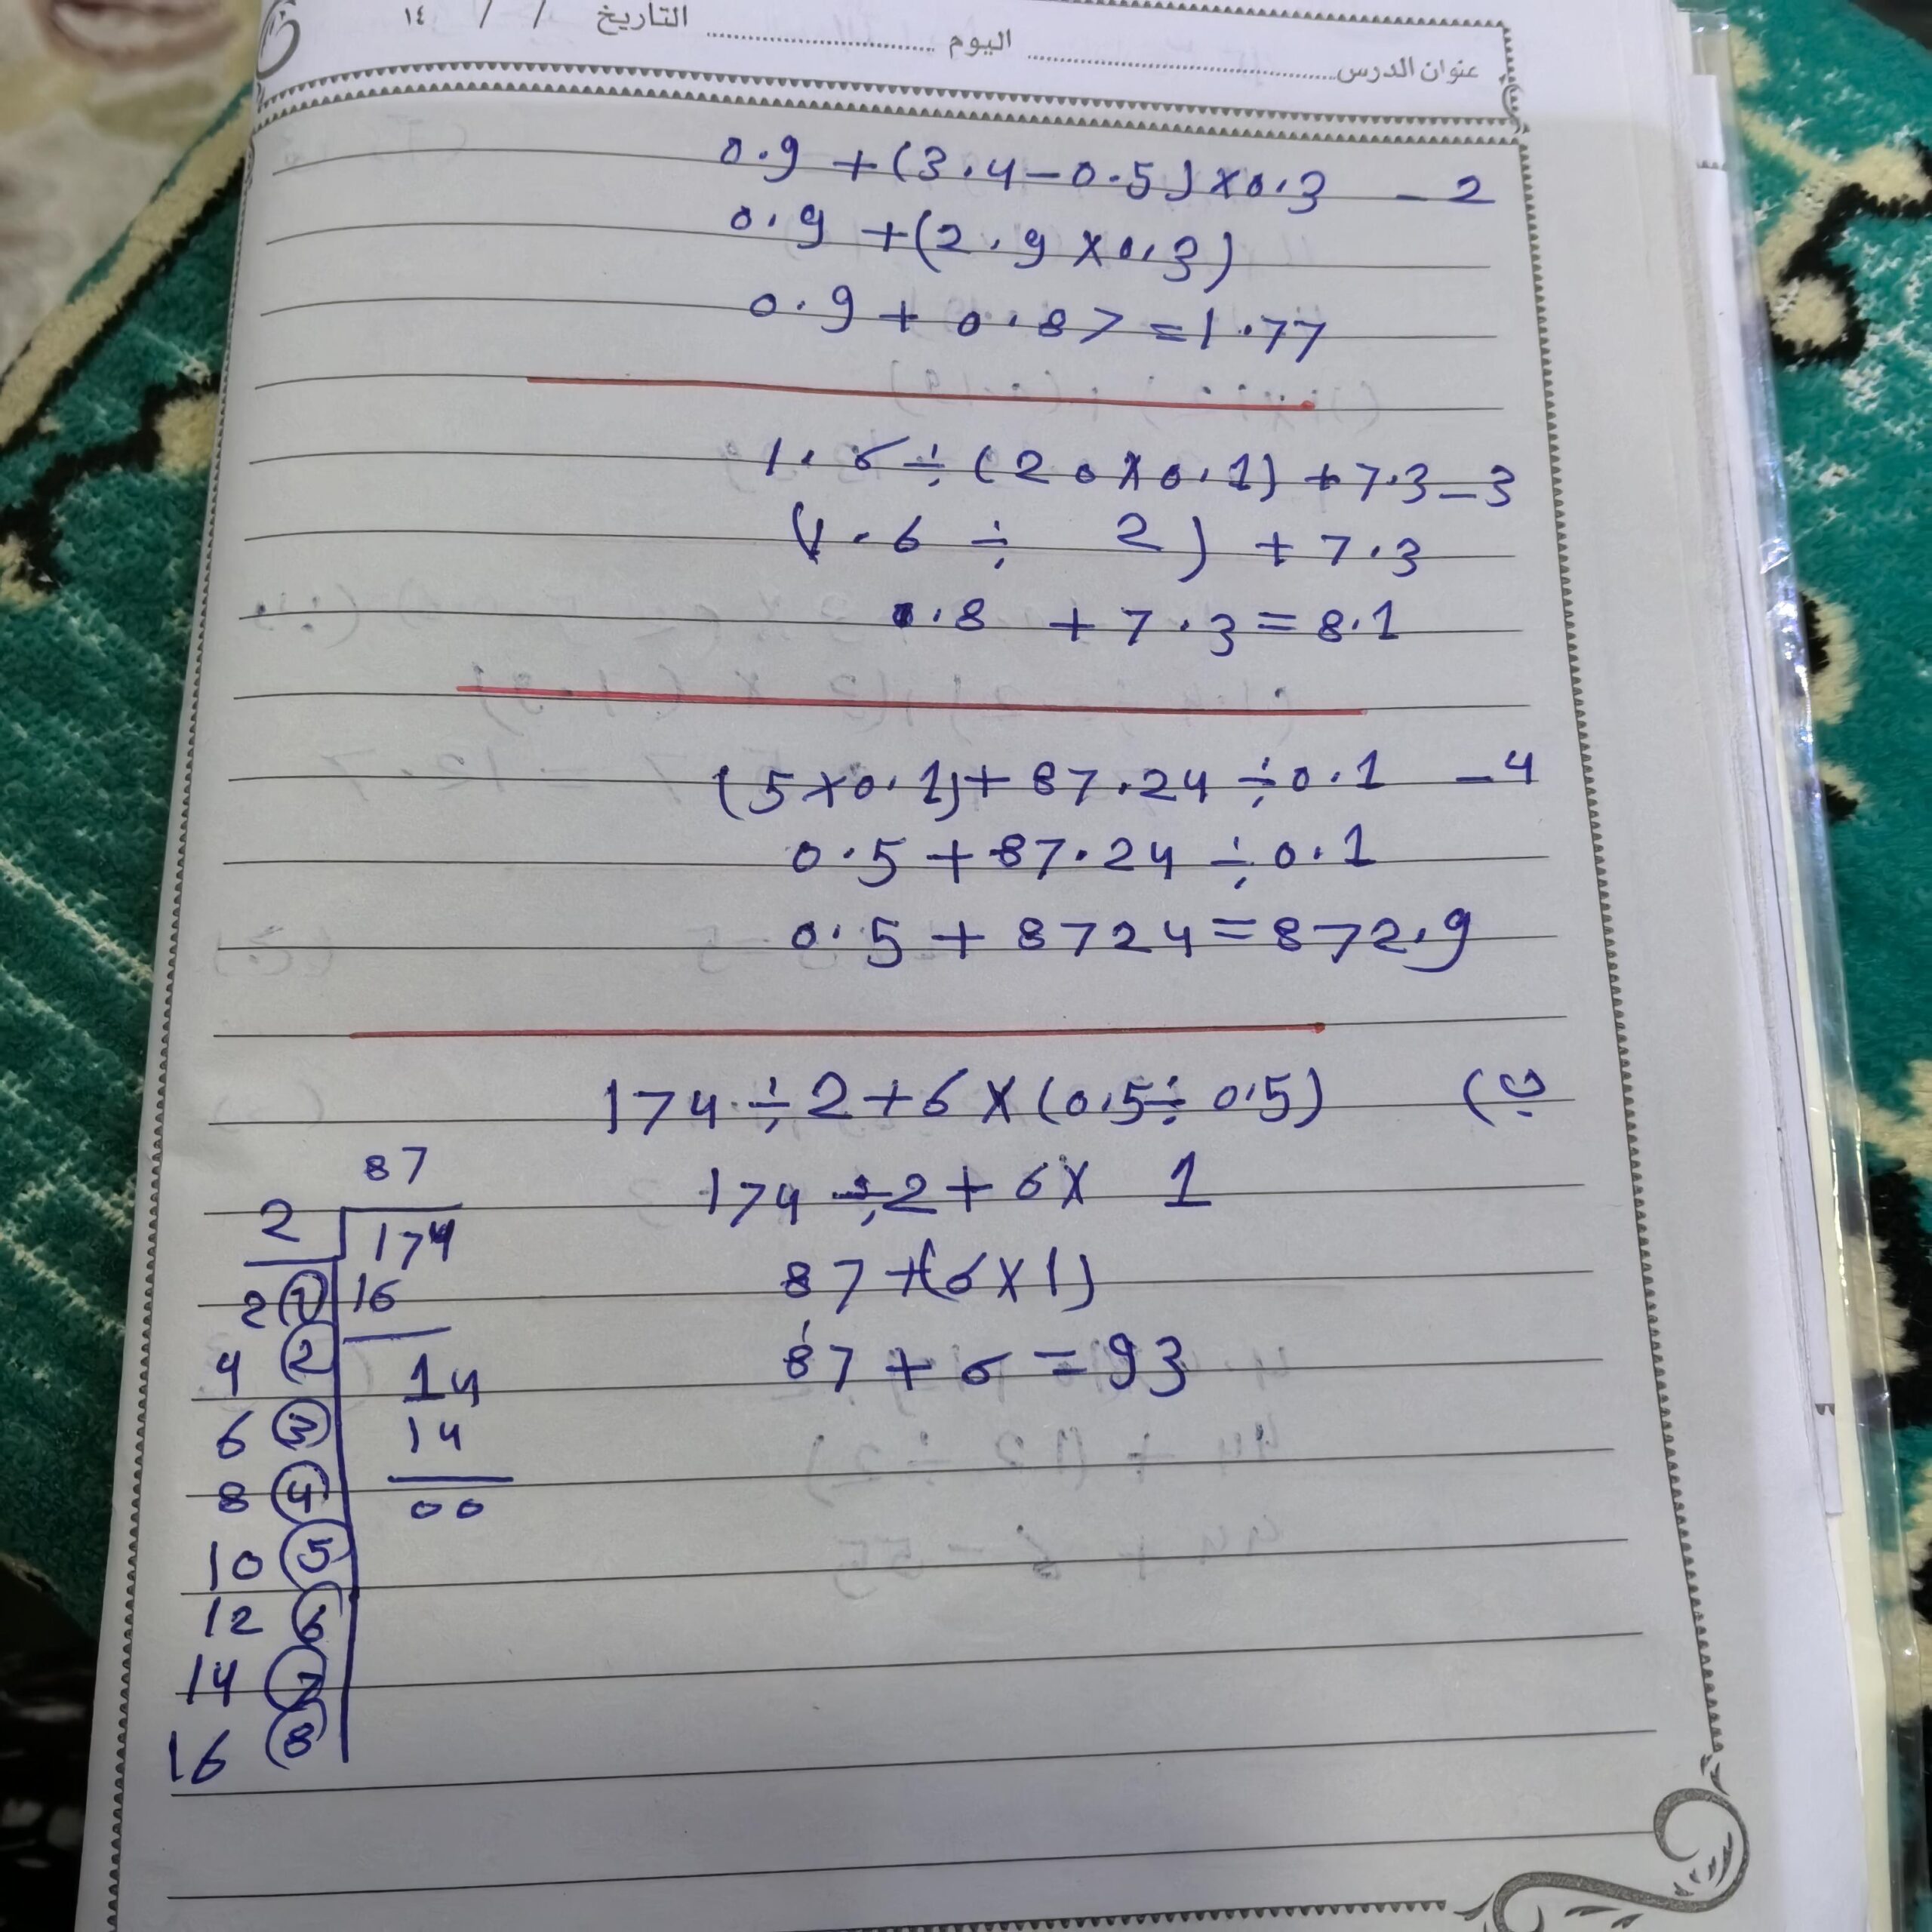 عنوان الدرس ........ اليوم ........ التاريخ / / ١٤
0.9 + (3.4 - 0.5) × 0.3 - 2
0.9 + (2.9 × 0.3)
0.9 + 0.87 = 1.77
1.6 ÷ (20 × 0.1) + 7.3 - 3
(1.6 ÷ 2) + 7.3
0.8 + 7.3 = 8.1
(5 × 0.1) + 87.24 ÷ 0.1 - 4
0.5 + 87.24 ÷ 0.1
0.5 + 8724 = 872.9
174 ÷ 2 + 6 × (0.5 ÷ 0.5) (ب
174 ÷ 2 + 6 × 1
87 + (6 × 1)
87 + 6 = 93
87
2 174
2 1 16
4 2 14
6 3 14
8 4 00
10 5
12 6
14 7
16 8